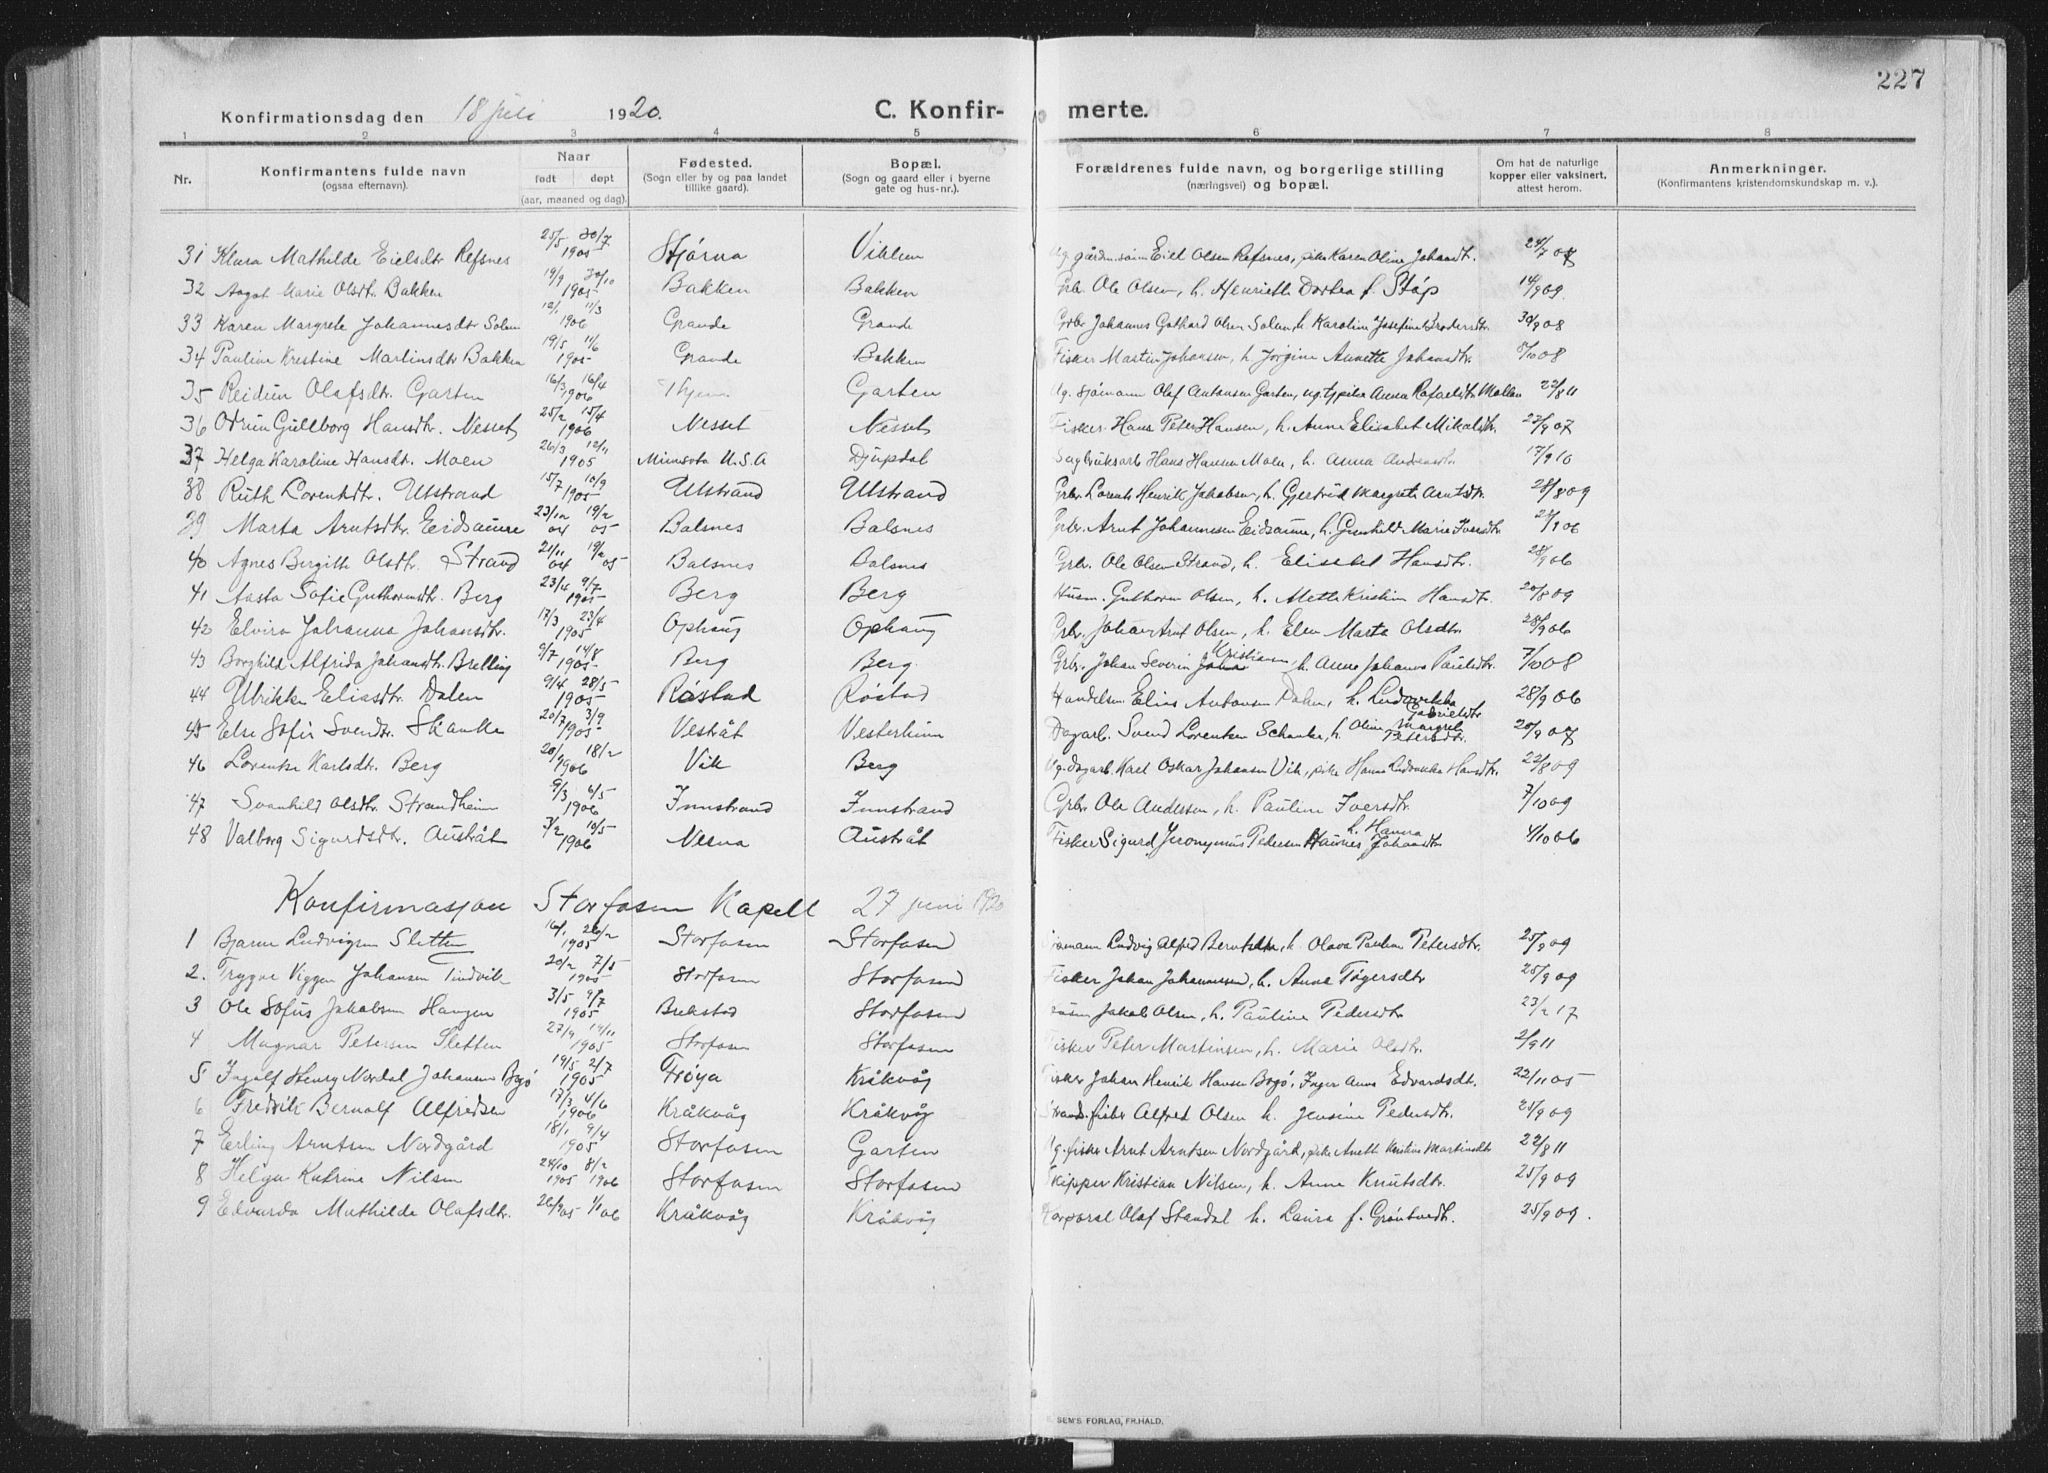 227
Konfirmationsdag den 18 juli 1920. C. Konfir- merte.
1 2 3 4 5 6 7 8
Nr. Konfirmantens fulde navn (ogsaa efternavn). Naar født døpt (aar, maaned og dag). Fødested. (Sogn eller by og paa landet tillike gaard). Bopæl. (Sogn og gaard eller i byerne gate og hus-nr.). Forældrenes fulde navn, og borgerlige stilling (næringsvei) og bopæl. Om hat de naturlige kopper eller vaksinert, attest herom. Anmerkninger. (Konfirmantens kristendomskundskap m. v.).
31 Klara Mathilde Eielsdtr Refsnes 25/5 20/7 1905 Stjørna Viklem Ug. gårdm. søn Eiel Olsen Refsnes, pike Karen Oline Johansdt. 24/7 07
32 Aagot Marie Olsdtr. Bakken 19/9 20/10 1905 Bakken Bakken Grb. Ole Olsen, h. Henriette Dortea f. Støp 14/9 09.
33 Karen Margrete Johannesdtr Solem 12/1 11/3 1906 Grande Grande Grbr Johannes Gothard Olsen Solem, h. Karoline Josefine Brodersdtr 30/9 08
34 Pauline Kristine Martinsdtr Bakken 19/5 11/6 1905 Grande Bakken Fisker Martin Johansen, h. Jørgine Annette Johansdtr. 8/10 08
35 Reidun Olafsdtr. Garten 16/3 16/4 1906 Garten Ug. Sjømann Olaf Antonsen Garten, ug. tj. pike Anna Rafaelsdtr Mollan 22/8 11
36 Odrun Gullborg Hansdtr. Nesset 25/2 15/4 1906 Nesset Nesset Fisker. Hans Peter Hansen, h. Anne Elisabet Mikalsdtr. 23/9 07
37 Helga Karoline Hansdt. Moen 26/3 12/11 1905 Minnsota U.S.A Djupdal Sagbruksarb Hans Hansen Moen, h. Anna Andersdtr. 17/9 10
38 Ruth Lorentsdtr. Utstrand 15/7 10/9 1905 Utstrand Utstrand Grbr. Lorents Henrik Jakobsen, h. Gjertrud Margrete Arntsdtr. 28/8 09
39 Marta Arntsdtr. Eidsaune 23/12 04 19/2 05 Balsnes Balsnes Grbr. Arnt Johannessen Eidsaune, h. Gunhild Marie Iversdtr. 28/9 06
40 Agnes Bergitte Olsdtr. Strand 21/11 04 19/2 05 Balsnes Balsnes Grbr. Ole Olsen Strand, h. Elisabet Hansdtr. 28/9 06
41 Aasta Sofie Guthormsdtr. Berg 23/4 9/7 1905 Berg Berg Husm. Guthorm Olsen, h. Mette Kristine Hansdtr. 20/8 09
42 Elvira Johanna Johansdtr. 17/3 23/4 1905 Ophaug Ophaug Grbr. Johan Arnt Olsen, h. Elen Marta Olsdtr. 28/9 06
43 Borghild Alfrida Johansdtr. Brelling 9/7 14/8 1905 Berg Berg Grbr. Johan Severin Kristiansen, h. Anne Johanna Paulsdtr. 7/10 08
44 Ulrikke Eliasdtr. Dalen 9/4 28/5 1905 Røstad Røstad Handelsm. Elias Antonsen Dalen, h. Ludovikka Gabrielsdtr 28/9 06
45 Else Sofie Svendsdtr. Skanke 20/7 3/9 1905 Vestråt Vesterheim Dagarb. Svend Lorentsen Schanke, h. Oline Margrete Petersdtr. 20/9 07
46 Lorentse Karlsdt. Berg 20/1 18/2 1906 Vik Berg Ug. dagarb. Karl Oskar Johansen Vik, pike Hanna Ludovikka Hansdtr. 22/8 09
47 Svanhild Olsdtr. Strandheim 9/3 6/5 1906 Innstrand Innstrand Grbr Ole Andersen, h. Pauline Iversdtr. 7/10 09
48 Valborg Sigurdsdtr. Austråt 7/2 10/5 1906 Nesna Austråt Fisker Sigurd Jeronymus Pedersen Haunes h. Hanna Johansdtr 4/10 06
Konfirmasjon Storfosen Kapell 27 juni 1920
1 Bjarne Ludvigsen Sletten 16/1 26/2 1905 Storfosen Storfosen Ludvig Alfred Berntsen, h. Olava Pauline Petersdtr. 25/9 09
2. Trygve Viggen Johansen Tindvik 20/2 7/5 1905 Storfosen Storfosen Fisker Johan Johannessen, h. Anna Tøgersdtr 25/9 09
3 Ole Sofus Jakobsen Haugen 3/5 9/7 1905 Brekstad Storfosen Jakob Olsen, h. Pauline Pedersdtr 23/2 17
4 Magnar Petersen Sletten 27/9 19/11 1905 Storfosen Storfosen Fisker Peter Martinsen, h. Marie Olsdtr. 2/9 11
5 Ingolf Henry Nordal Johansen Bogø 19/5 2/7 1905 Frøya Kråkvåg Fisker Johan Henrik Hansen Bogø, Inger Anna Edvardsdt. 22/11 05
6 Fredrik Bernolf Alfredsen 17/3 4/6 1906 Kråkvåg Kråkvåg Strands. fisker Alfred Olsen h. Jensine Pedersdtr. 25/9 09
7 Erling Arntsen Nordgård 18/1 9/4 1905 Storfosen Garten Ug. fisker Arnt Arntsen Nordgård, pike Anett Kristine Martinsdtr 22/8 11
8 Helga Katrine Nilsen 24/10 1905 8/2 1906 Storfosen Storfosen Skipper Kristian Nilsen, h. Anne Knutsdtr. 25/9 09
9 Edvarda Mathilde Olafsdtr. 26/9 05 1/1 06 Kråkvåg Kråkvåg Korporal Olaf Standal h. Laura f. Grøntvedt. 25/9 09.
SEM'S FORLAG, FR.HALD.